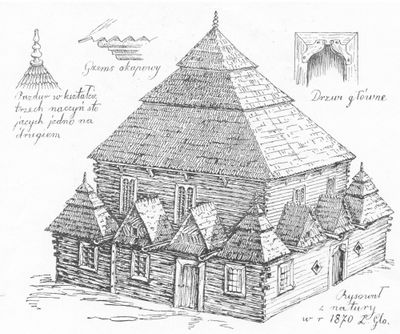 Gzems okapowy
Pazdur w kształcie
trzech naczyń sto
jących jedno na
drugiem
Drzwi główne
Rysował
z natury
w r 1870 Z Glo.